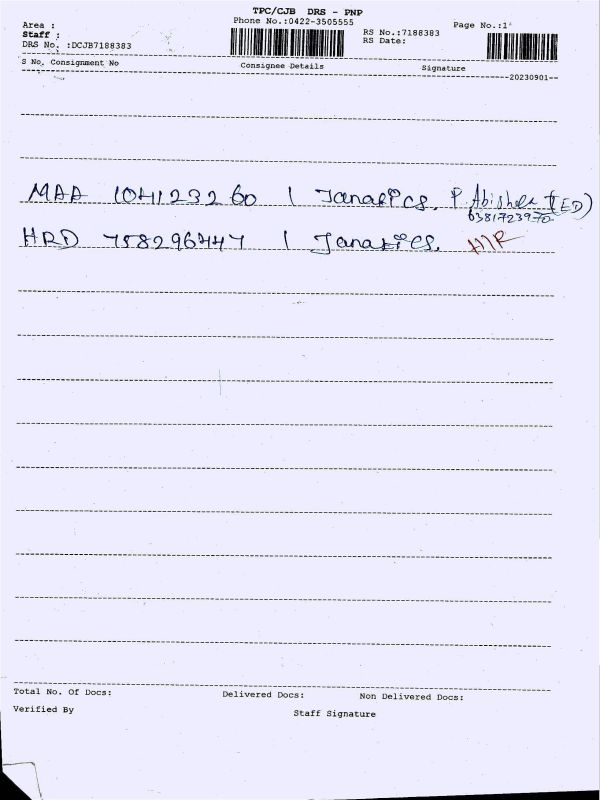 TPC/CJB DRS - PNP
Area :
Phone No.:0422-3505555
Page No.:1
Staff :
RS No.:7188383
DRS No. :DCJB7188383
RS Date:
S No. Consignment No
Consignee Details
Signature
20230901
MAA 104123260 1 Janatics. P. Abishek (ED)
6381723970
HRD 758296447 1 Janatics.
Total No. Of Docs:
Delivered Docs:
Non Delivered Docs:
Verified By
Staff Signature